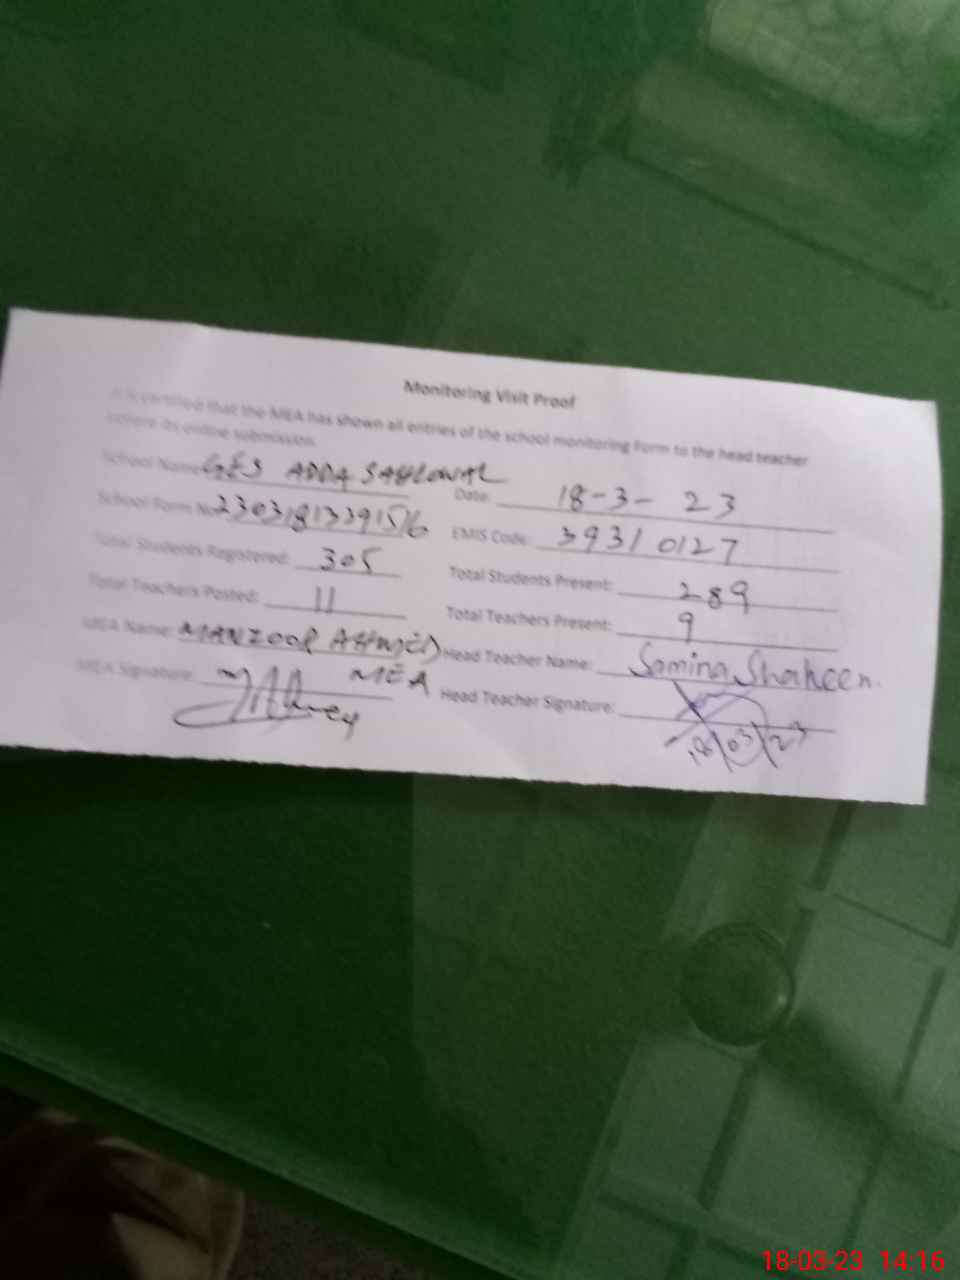 Monitoring Visit Proof
It is certified that the MEA has shown all entries of the school monitoring Form to the head teacher
before its online submission.
School Name: GES ADDA SAHLOWAL Date: 18-3-23
School Form No: 2303181339156 EMIS Code: 39310127
Total Students Registered: 305 Total Students Present: 289
Total Teachers Posted: 11 Total Teachers Present: 9
MEA Name: MANZOOR AHMED Head Teacher Name: Samina Shaheen.
MEA
MEA Signature: Head Teacher Signature:
18/03/23
18-03-23 14:16